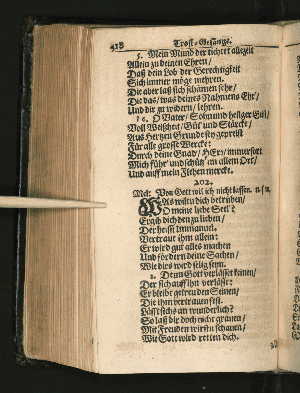 418 Trost-Gesänge.
5. Mein Mund der tichtet allezeit
Allein zu deinen Ehren/
Daß dein Lob der Gerechtigkeit
Sich immer möge mehren.
Die aber laß sich schämen sehr/
Die das/ was deines Nahmens Ehr/
Und dir zu widern/ lehren.
16. O Vater/ Sohn und heilger Geist/
Voll Weißheit/ Güt und Stärcke/
Aus Hertzen Grund sey gepreist
Für alle grosse Wercke:
Durch deine Gnad/ HErr/ immerfort
Mich führ und schütz an allem Ort/
Und auff mein Flehen mercke.
202.
Mel: Von Gott wil ich nicht lassen.
WAs wiltu dich betrüben/
O meine liebe Seel?
Ergib dich den zu lieben/
Der heist Immanuel.
Vertraue ihm allein:
Er wird gut alles machen
Und fördern deine Sachen/
Wie dirs wird selig seyn.
2. Denn Gott verlässet keinen/
Der sich auff Ihn verläst:
Er bleibt getreu den Seinen/
Die ihm vertrauen fest.
Läst sichs an wunderlich?
So laß dir doch nicht grauen/
Mit Freuden wirstu schauen/
Wie Gott wird retten dich.